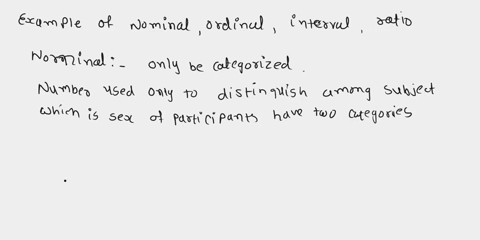 Example of Nominal, ordinal, interval, ratio
Nominal:- only be categorized.
Number used only to distinguish among subject
which is sex of participants have two categories